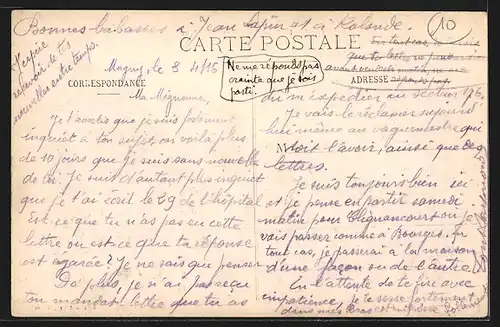 Bonnes babasses à Jean Lapin et à Rolande.
10
J'espère recevoir de tes nouvelles entre temps.
CARTE POSTALE
Magny, le 3 4/15
CORRESPONDANCE
Ne me réponds pas crainte que je sois parti.
En tout cas, je
que ta lettre ne
avant
ADRESSE
Ma Mignonne,
J't'avoue que je suis joliment
inquiet à ton sujet, en voilà plus
de 10 jours que je suis sans nouvelle
de toi. Je suis d'autant plus inquiet
que je t'ai écrit le 29 de l'hôpital
Est-ce que tu n'as pas eu cette
lettre ou est-ce que ta réponse
est égarée? Je ne sais que penser
De plus, je n'ai pas reçu
ton mandat lettre que tu as
du m'expédier au secteur 76,
Je vais le réclamer aujourd'
hui même au vaguemestre qui
M
doit l'avoir, ainsi que des
lettres.
Je suis toujours bien ici
et je pense partir samedi
matin pour Clignancourt où je
vais passer comme à Bourges. En
tout cas, je passerai à la maison
d'une façon ou de l'autre.
En l'attente de te lire avec
impatience, je te serre fortement
dans mes bras